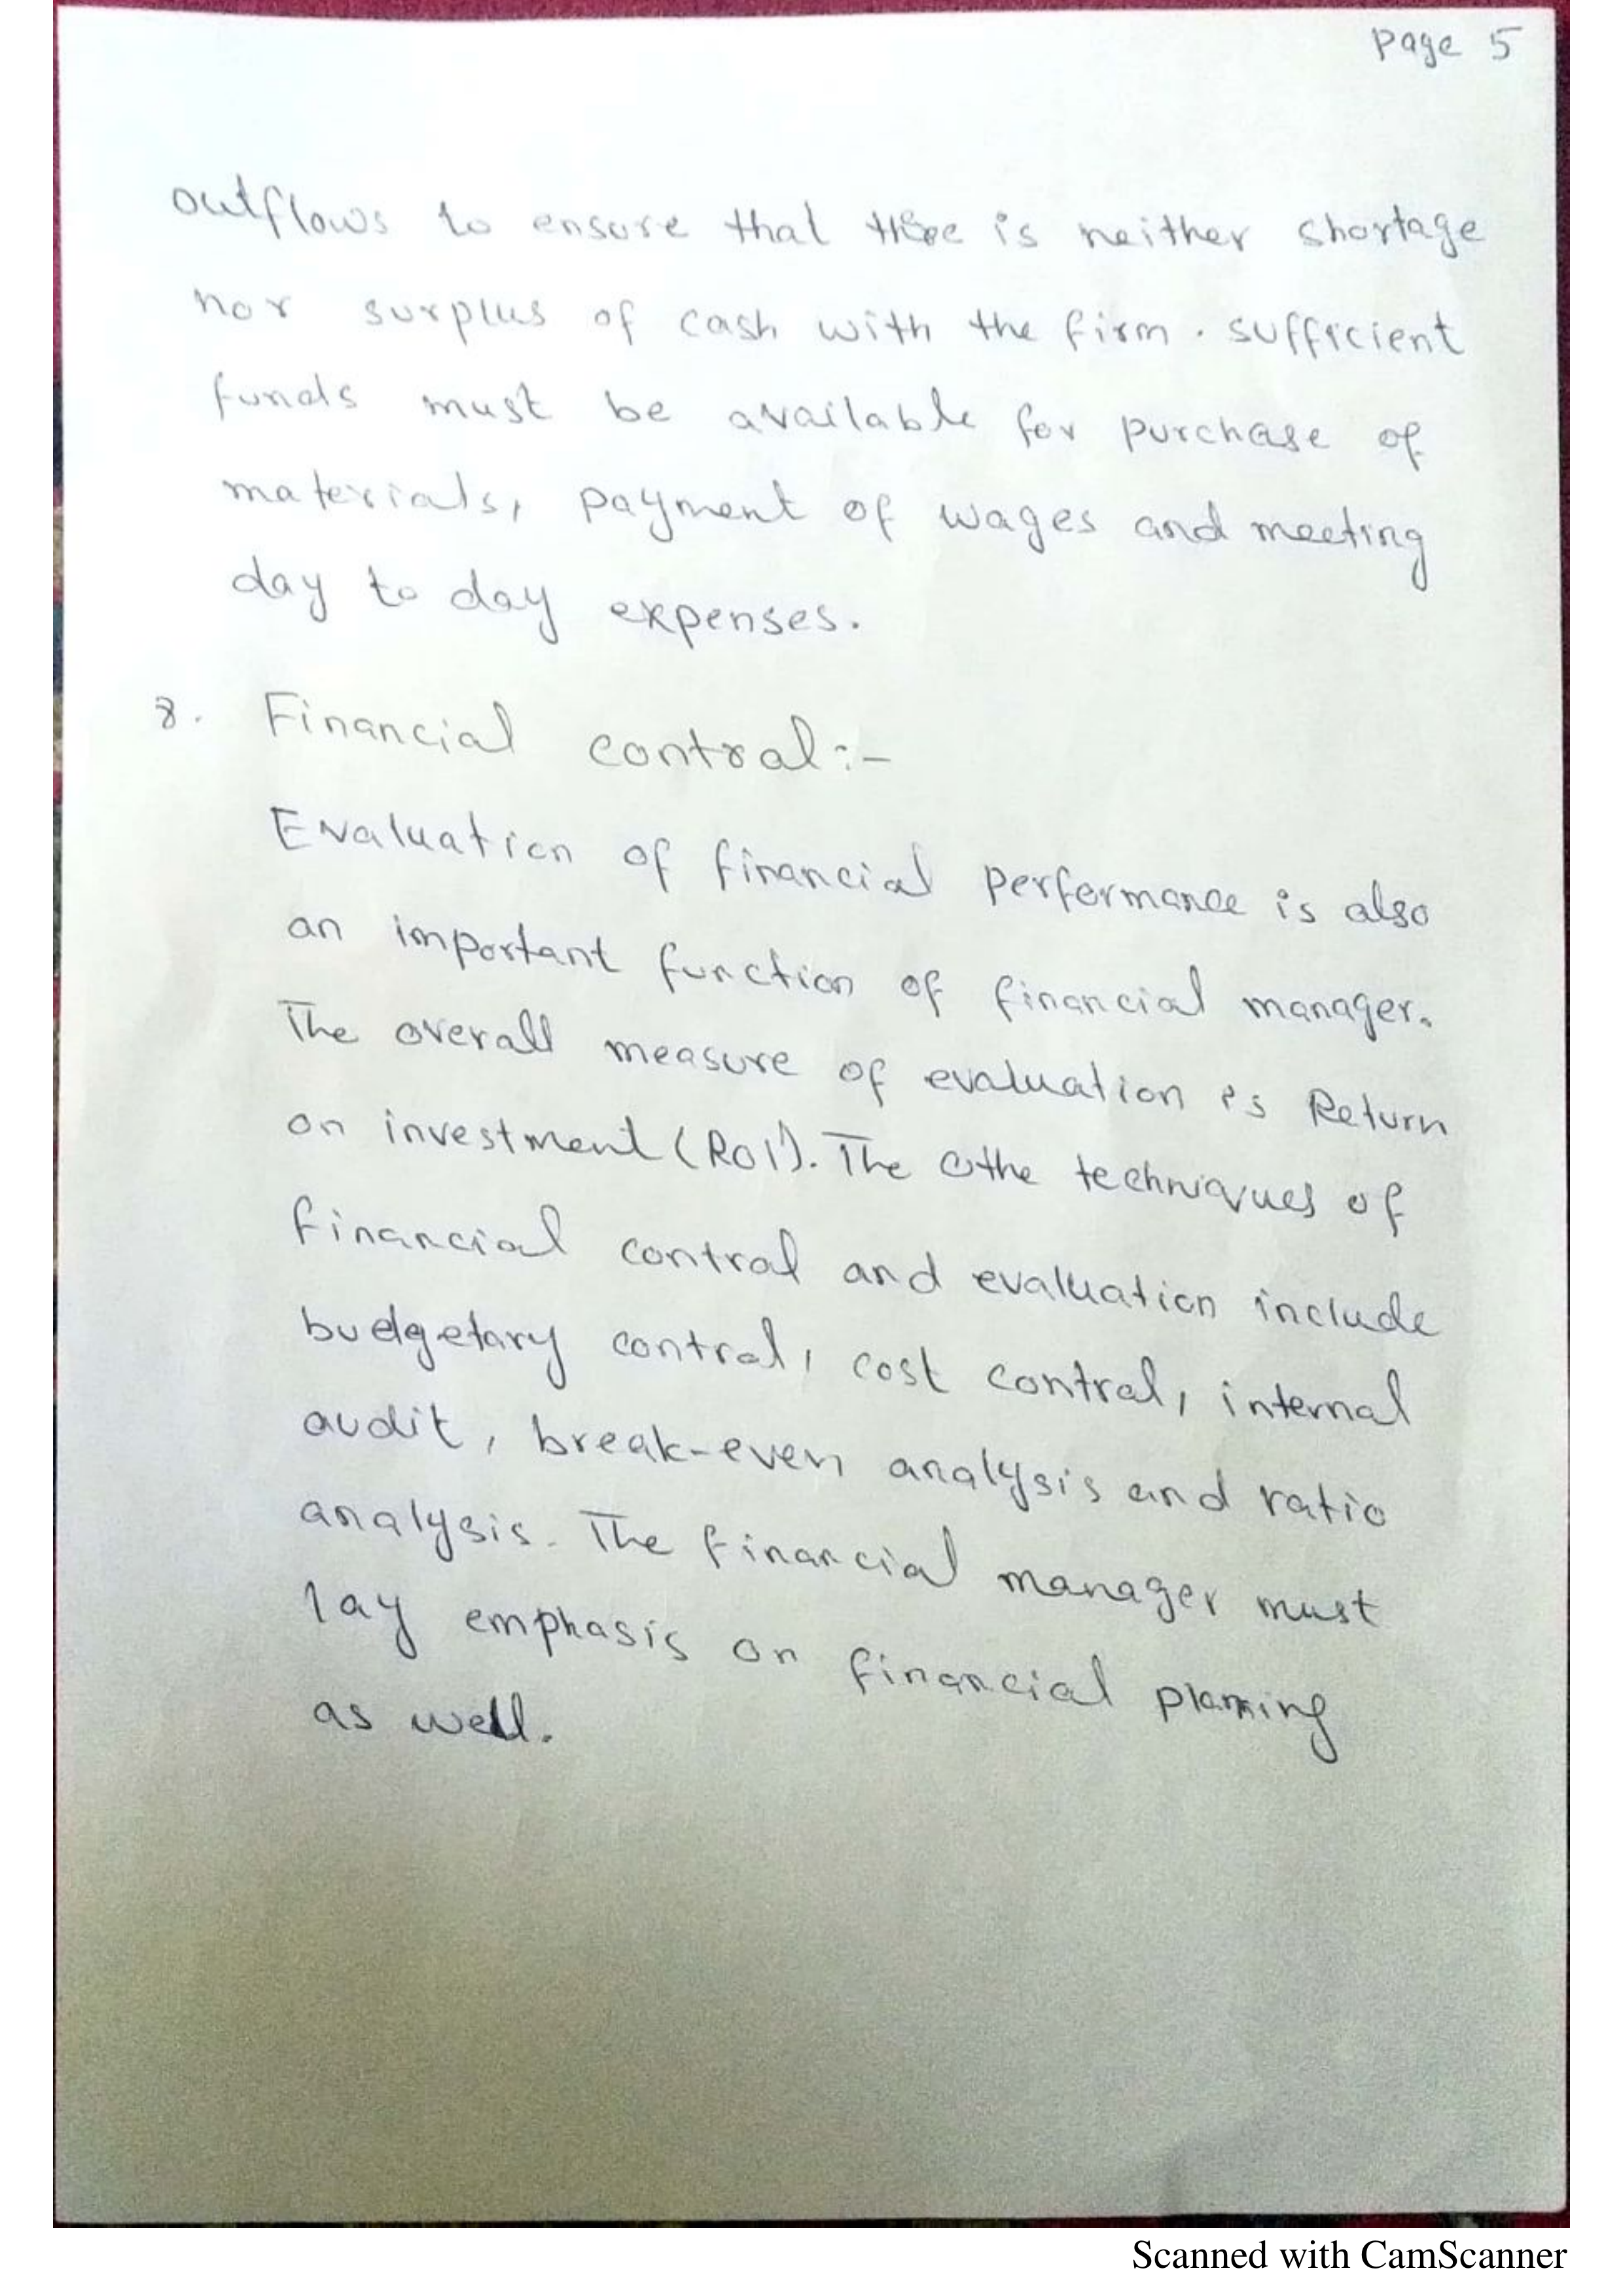 Page 5
outflows to ensure that there is neither shortage
nor surplus of cash with the firm. sufficient
funds must be available for purchase of
materials, payment of wages and meeting
day to day expenses.
8. Financial contral:-
Evaluation of financial performance is also
an important function of financial manager.
The overall measure of evaluation is Return
on investment (ROI). The othe techniques of
financial contral and evaluation include
budgetary contral, cost contral, internal
audit, break-even analysis and ratio
analysis. The financial manager must
lay emphasis on financial planning
as well.
Scanned with CamScanner